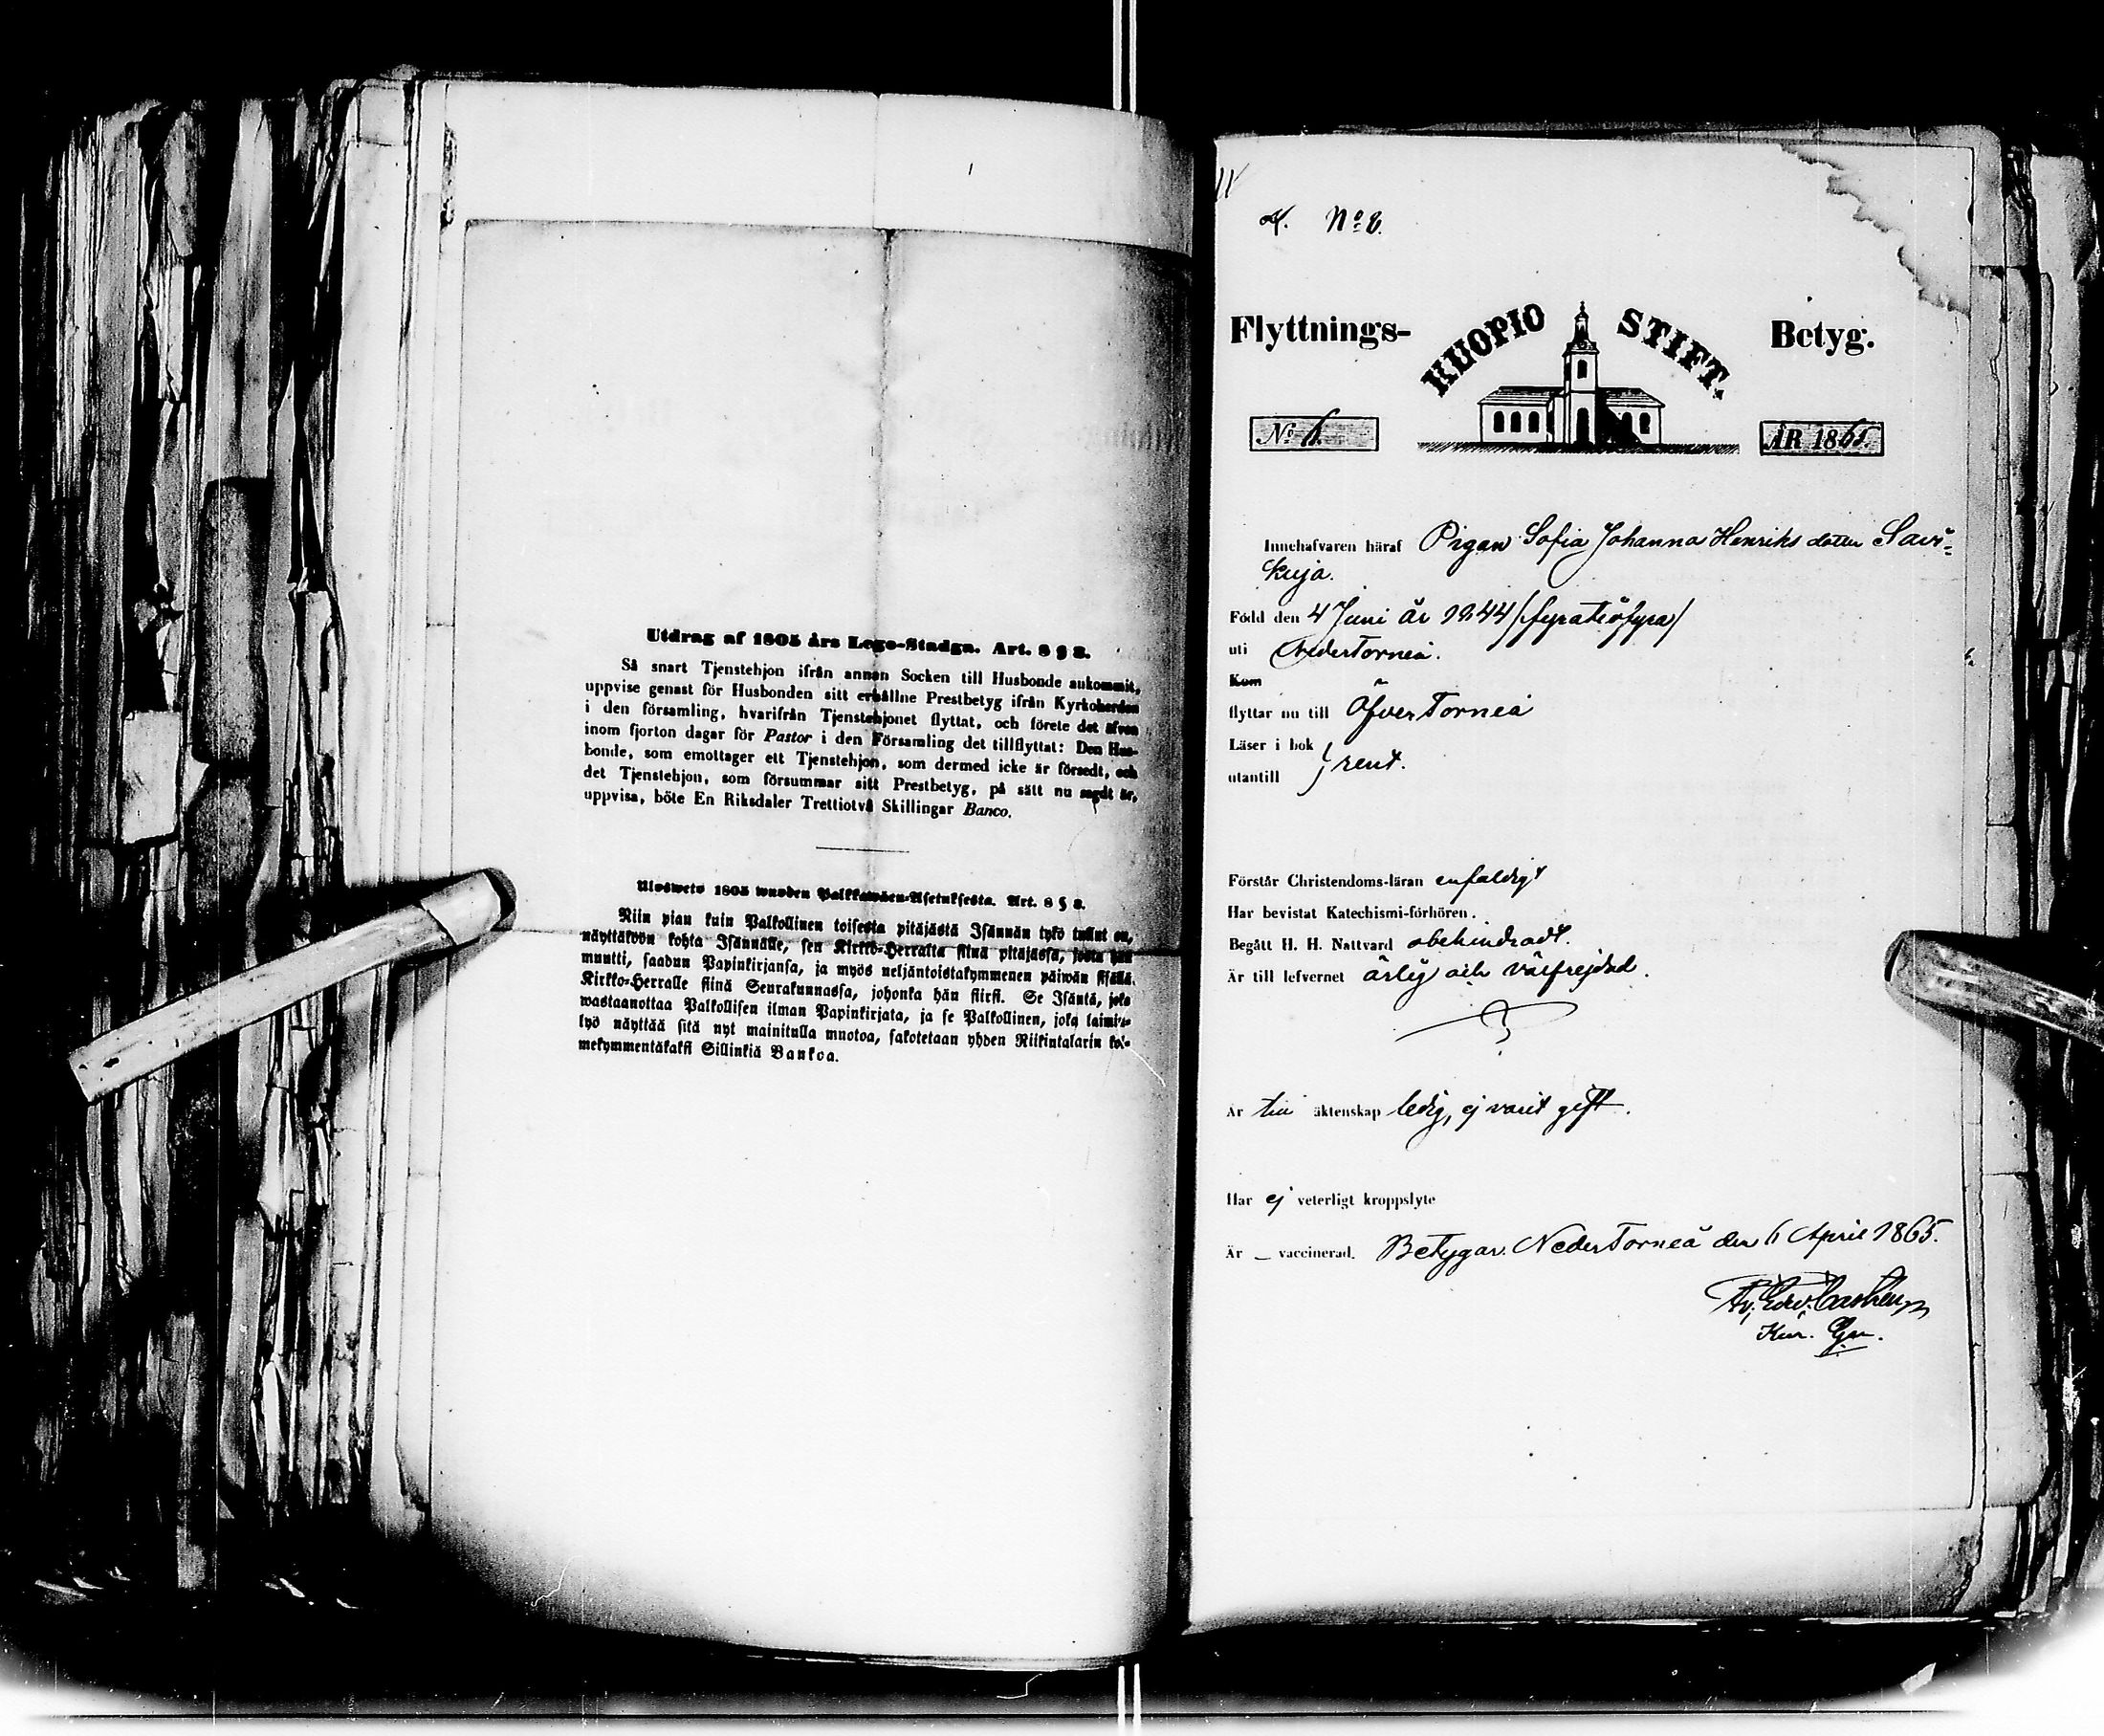 Utdrag af 1805 års Lego-Stadga. Art. 8 § 3.
Så snart Tjenstehjon ifrån annan Socken till Husbonde ankommit,
uppvise genast för Husbonden sitt erhållne Prestbetyg ifrån Kyrkoherden
i den församling, hvarifrån Tjenstehjonet flyttat, och förete det äfven
inom fjorton dagar för Pastor i den Församling det tillflyttat: Den Hus-
bonde, som emottager ett Tjenstehjon, som dermed icke är försedt, och
det Tjenstehjon, som försummar sitt Prestbetyg, på sätt nu sagdt är,
uppvisa, böte En Riksdaler Trettiotvå Skillingar Banco.
Ulosweto 1805 wuoden Palkkawäen-Asetuksesta. Art. 8 § 3.
Niin pian kuin Palkollinen toisesta pitäjästä Isännän tykö tullut on,
näyttäköön kohta Isännälle, sen Kirkko-Herralta siinä pitäjässä, josta hän
muutti, saadun Papinkirjansa, ja myös neljäntoistakymmenen päiwän sisällä,
Kirkko-Herralle siinä Seurakunnassa, johonka hän siirsi. Se Isäntä, joka
wastaanottaa Palkollisen ilman Papinkirjata, ja se Palkollinen, joka laimin-
lyö näyttää sitä nyt mainitulla muotoa, sakotetaan yhden Riikintalarin kol-
mekymmentäkaksi Sillinkiä Bankoa.
No 8.
Flyttnings- KUOPIO STIFT. Betyg.
No 6. ÅR 1865.
Innehafvaren häraf Pigan Sofia Johanna Henriks dotter Savi-
kuja.
Född den 4 Juni år 1844 /fyratiofyra/
uti NederTorneå.
Kom
flyttar nu till ÖfverTorneå
Läser i bok
utantill } rent.
Förstår Christendoms-läran enfaldigt
Har bevistat Katechismi-förhören.
Begått H. H. Nattvard obehindradt.
Är till lefvernet ärlig och välfrejdad.
Är till äktenskap ledig, ej varit gift.
Har ej veterligt kroppslyte
Är – vaccinerad. Betygar. NederTorneå den 6 April 1865.